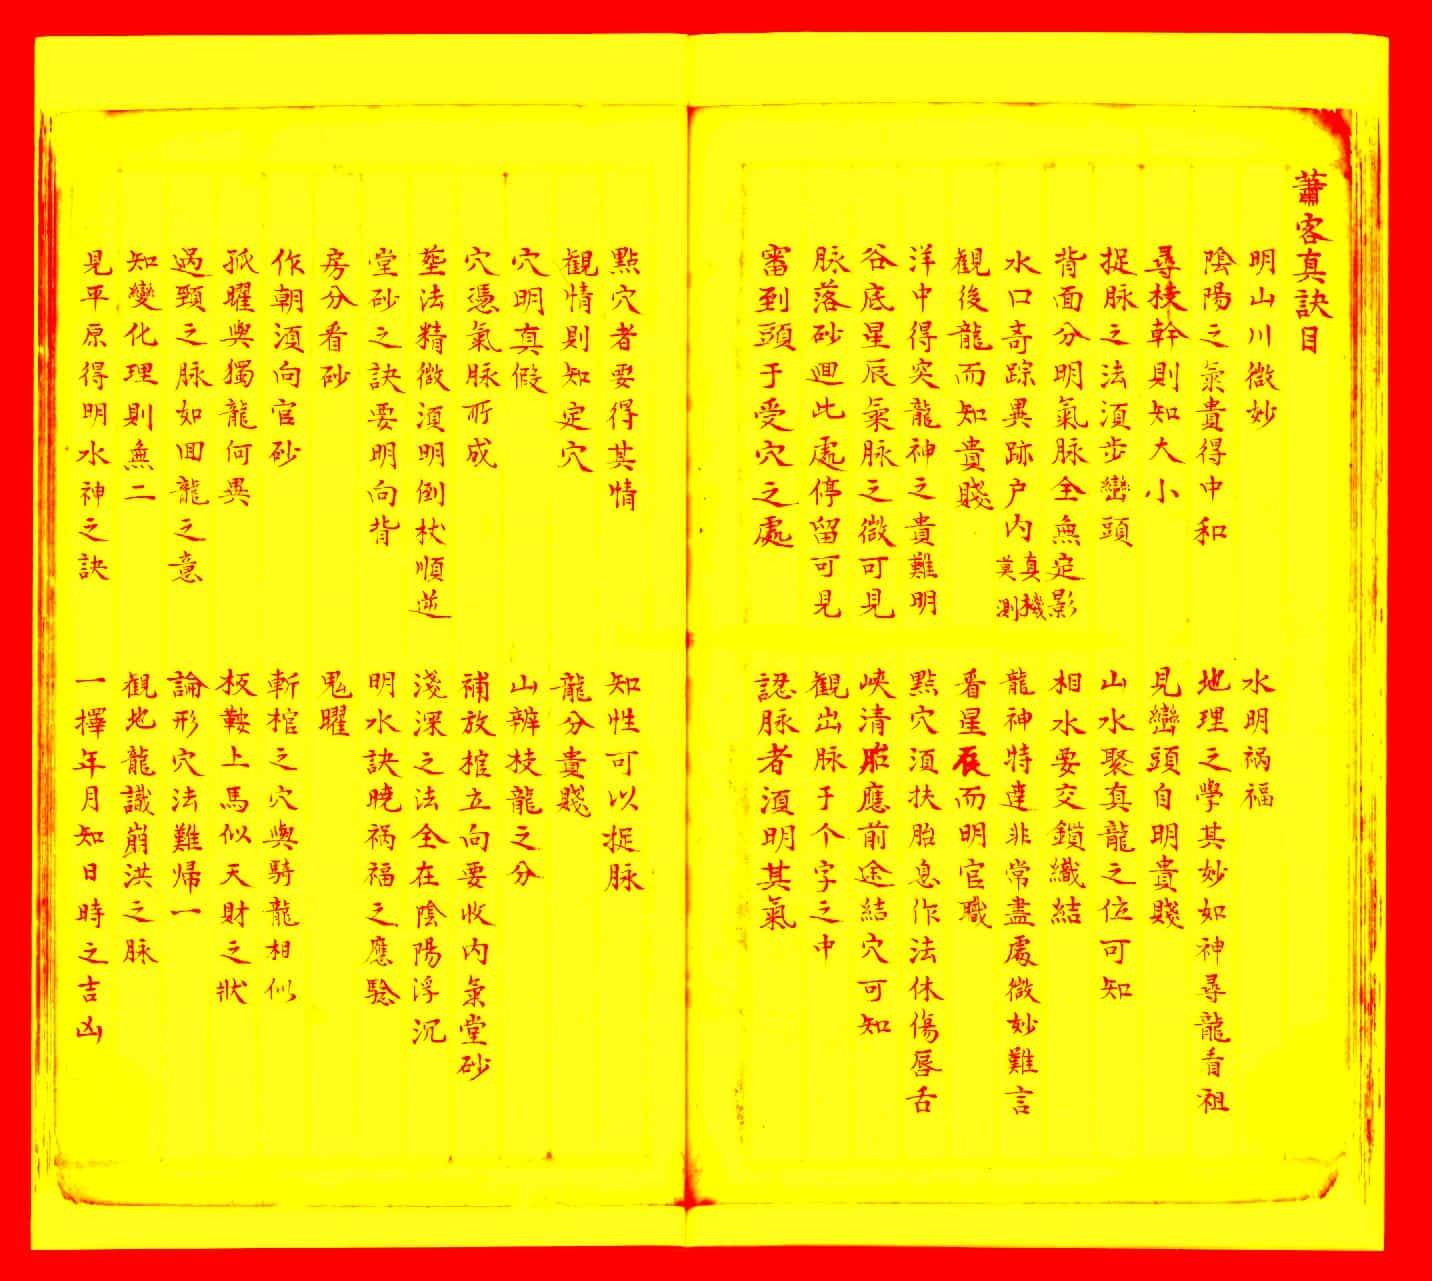 蕭客真訣目
明山川微妙
水明禍福
陰陽之氣貴得中和
地理之學其妙如神尋龍看祖
尋棱幹則知大小
見巒頭自明貴賤
捉脉之法湏步巒頭
山水聚真龍之位可知
背面分明氣脉全無定影
相水要交鎖織結
水口奇踪異跡户内真機莫測
龍神特達非常盡處微妙難言
観後龍而知貴賤
看星辰而明官職
洋中得突龍神之貴難明
點穴湏扶胎息作法休傷唇舌
谷底星辰氣脉之微可見
峽清應前途結穴可知
脉落砂迴此處停留可見
観出脉于个字之中
審到頭于受穴之處
認脉者湏明其氣
點穴者要得其情
知性可以捉脉
観情則知定穴
龍分貴賤
穴明真假
山辨枝龍之分
穴憑氣脉所成
補放棺立向要收内氣堂砂
塟法精微湏明倒杖順逆
淺深之法全在陰陽浮沉
堂砂之訣要明向背
明水訣曉禍福之應騐
房分看砂
鬼曜
作朝湏向官砂
斬棺之穴與騎龍相似
孤曜與獨龍何異
板鞍上馬似天財之狀
過頸之脉如回龍之意
論形穴法難歸一
知變化理則無二
観地龍識崩洪之脉
見平原得明水神之訣
一擇年月知日時之吉凶